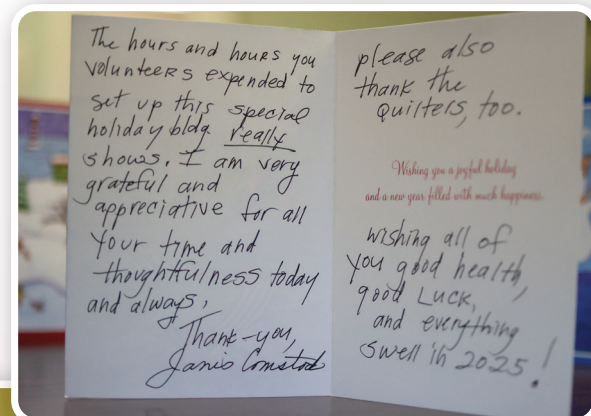 The hours and hours you
volunteers expended to
set up this special
holiday bldg really
shows. I am very
grateful and
appreciative for all
your time and
thoughtfulness today
and always,
Thank-you,
Janis Comstock
please also
thank the
quilters, too.
Wishing you a joyful holiday
and a new year filled with much happiness.
wishing all of
you good health,
good Luck,
and everything
swell in 2025!